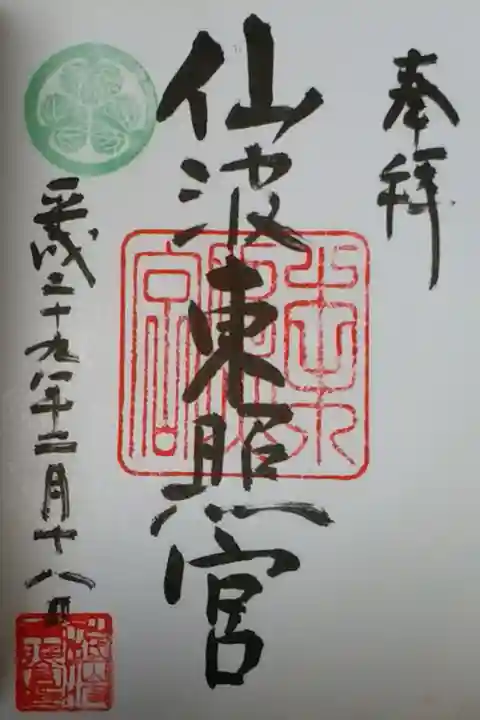 奉拝
仙波東照宮
平成二十九年三月十八日